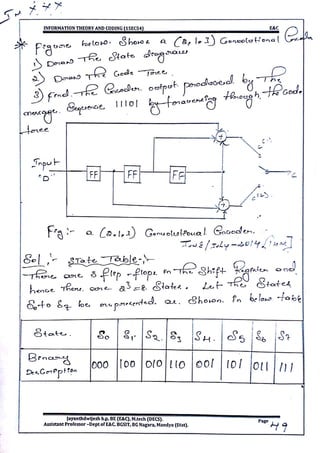 INFORMATION THEORY AND CODING (15EC54) E&C
Figure below shows a (2,1,3) Convolutional Encoder
1) Draw The State diagram
2) Draw The Code Tree.
3) Find The Encoder output produced by The
message Sequence 11101 by traversing through The Code
tree
Input
D
FF FF FF
+
+
C
Fig :- a (2,1,3) Convolutional Encoder.
June/July-2014.
Sol :- State Table :-
There are 3 flip-flops in The Shift Register and
hence There are 2³=8 States. Let The States
S0 to S7 be represented as Shown in below table
State S0 S1 S2 S3 S4 S5 S6 S7
Binary
Description 000 100 010 110 001 101 011 111
Jayanthdwijesh h.p. BE (E&C), M.tech (DECS).
Assistant Professor –Dept of E&C. BGSIT, BG Nagara, Mandya (Dist).
Page 49